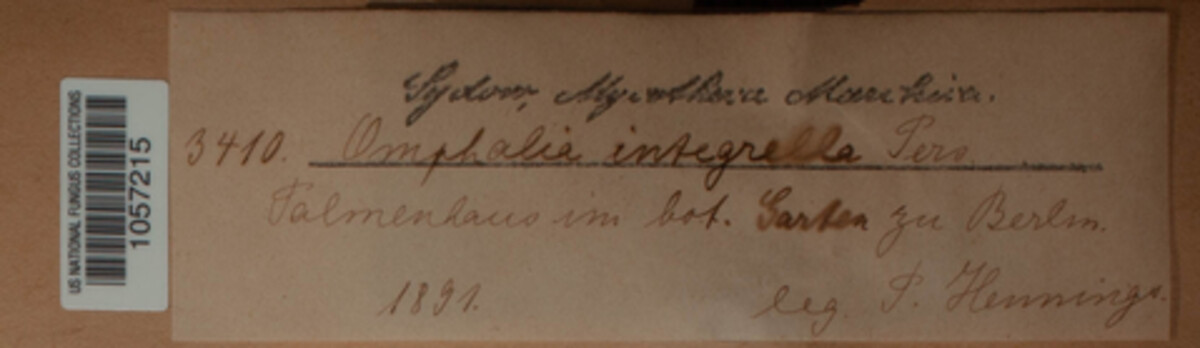 Sydow, Mycotheca Marchica.
3410. Omphalia integrella Pers
Palmenhaus im bot. Garten zu Berlin.
1891. leg. P. Hennings.
US NATIONAL FUNGUS COLLECTIONS
1057215